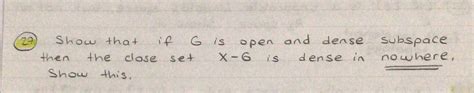 22 Show that if G is open and dense subspace
then the close set X-G is dense in nowhere.
Show this.